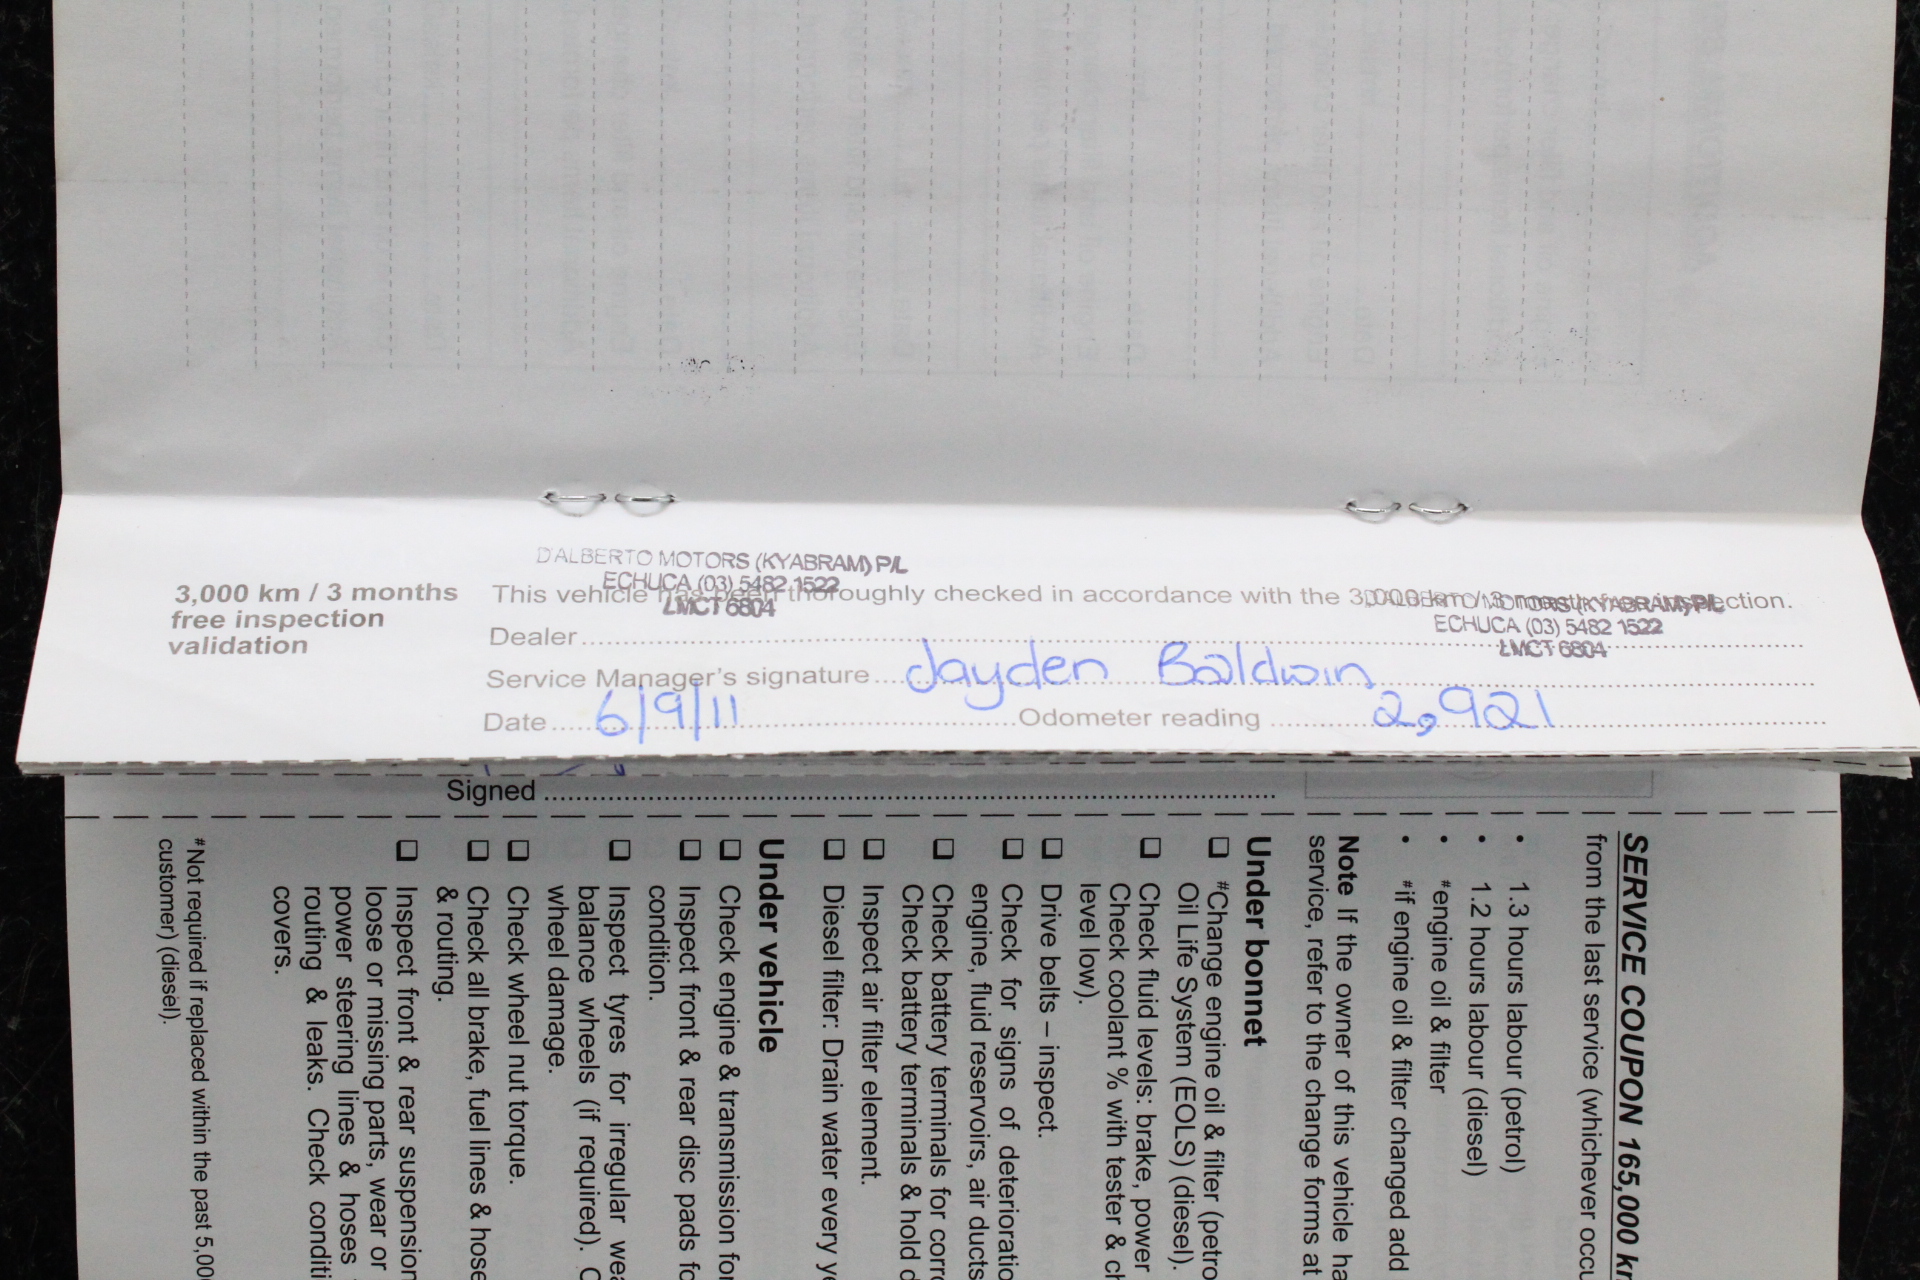 D'ALBERTO MOTORS (KYABRAM) P/L
ECHUCA (03) 5482 1522
LMCT 6804
3,000 km / 3 months
free inspection
validation
This vehicle has been thoroughly checked in accordance with the 3,000 km / 3 months free inspection.
D'ALBERTO MOTORS (KYABRAM) P/L
ECHUCA (03) 5482 1522
LMCT 6804
Dealer
Service Manager's signature Jayden Baldwin
Date 6/9/11 Odometer reading 2,921
Signed
SERVICE COUPON 165,000 km
from the last service (whichever
• 1.3 hours labour (petrol)
• 1.2 hours labour (diesel)
• #engine oil & filter
• #if engine oil & filter changed add
Note If the owner of this vehicle
service, refer to the change forms at
Under bonnet
❑ #Change engine oil & filter
Oil Life System (EOLS) (diesel).
❑ Check fluid levels: brake, power
Check coolant % with tester &
level low).
❑ Drive belts – inspect.
❑ Check for signs of
engine, fluid reservoirs, air ducts
❑ Check battery terminals for
Check battery terminals & hold
❑ Inspect air filter element.
❑ Diesel filter: Drain water every
Under vehicle
❑ Check engine & transmission for
❑ Inspect front & rear disc pads
condition.
❑ Inspect tyres for irregular
balance wheels (if required).
wheel damage.
❑ Check wheel nut torque.
❑ Check all brake, fuel lines &
& routing.
❑ Inspect front & rear suspension
loose or missing parts, wear or
power steering lines & hoses
routing & leaks. Check
covers.
#Not required if replaced within the past
customer) (diesel).